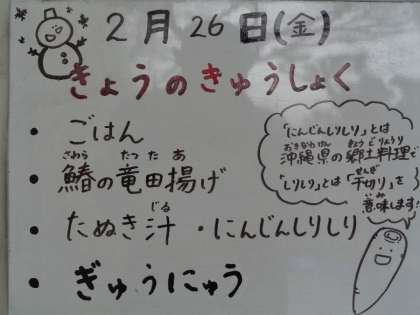 2月26日(金)
きょうのきゅうしょく
・ごはん
・鰆の竜田揚げ
さわら たつ た あ
・たぬき汁 ・にんじんしりしり
じる
・ぎゅうにゅう
「にんじんしりしり」とは
沖縄県の郷土料理で
おきなわけん きょうどりょうり
「しりしり」とは「千切り」を
せんぎ
意味します!
いみ